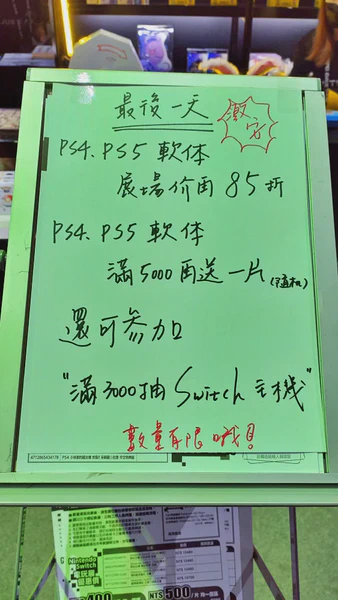 最後一天
PS4、PS5 軟体
展場价再 85折
PS4、PS5 軟体
滿5000再送一片(隨机)
還可參加
"滿3000抽 Switch 主機"
數量有限哦!
Nintendo
Switch
電玩展
優惠價
NT$500